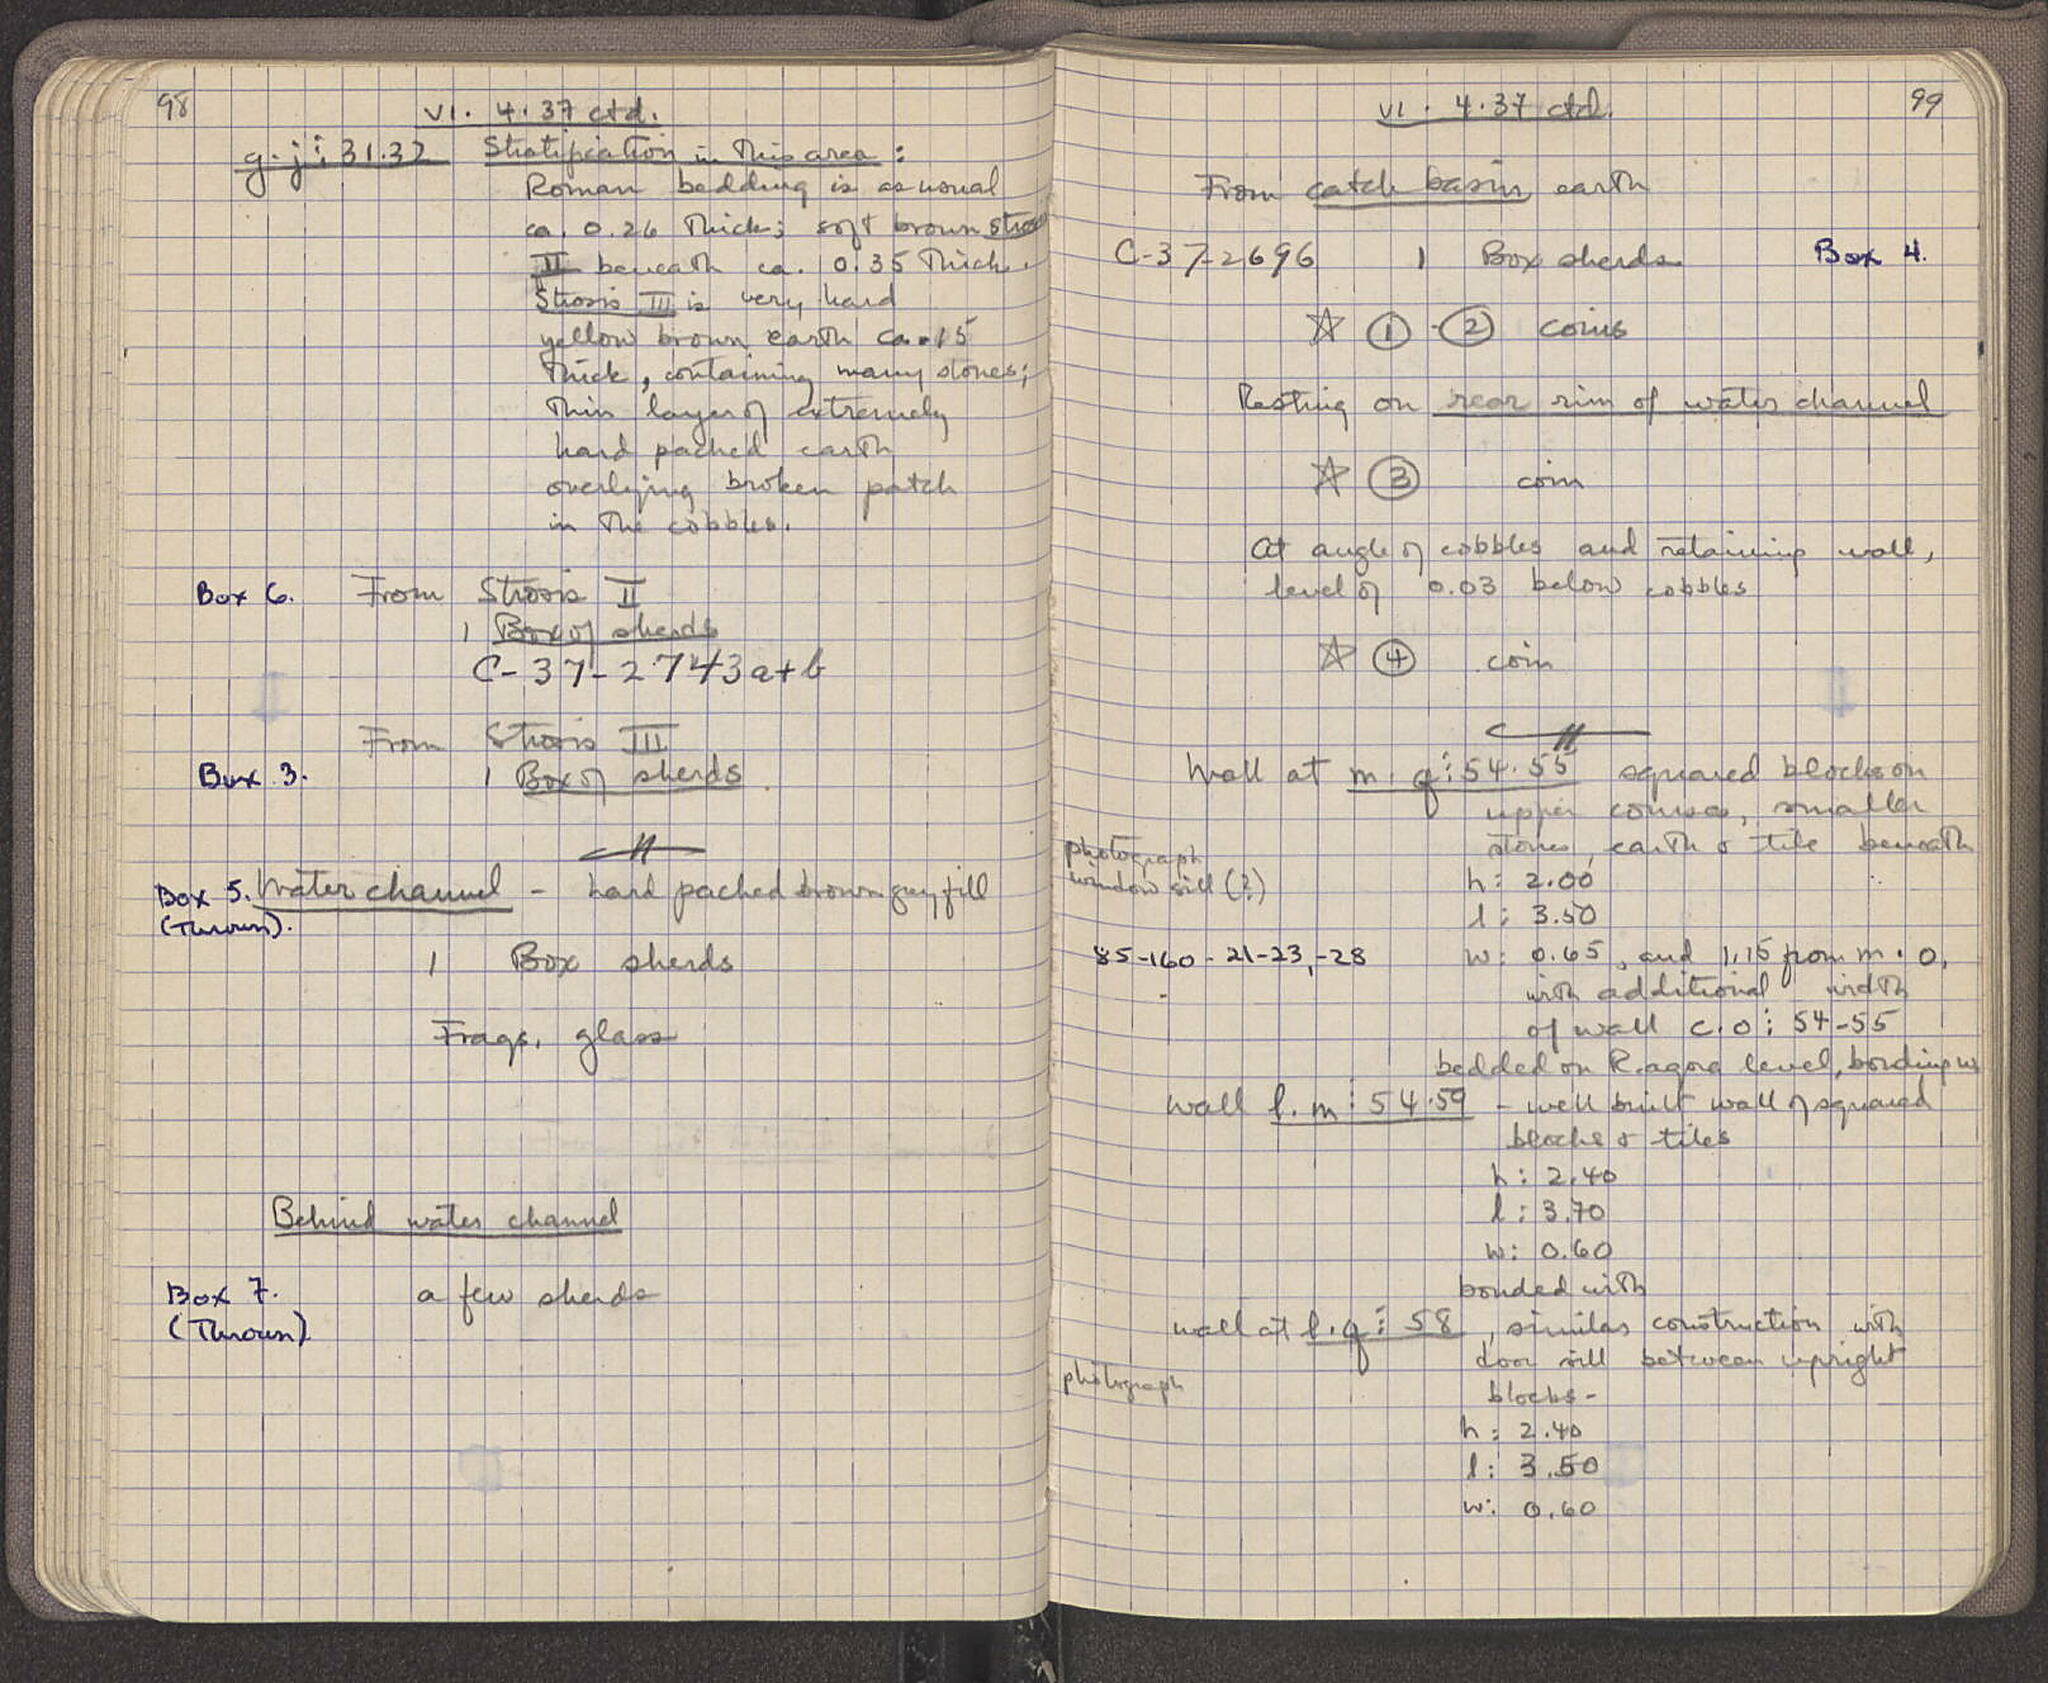 98
VI. 4.37 ctd.
g-j : 31.32 Stratification in this area :
Roman bedding is as usual
ca. 0.26 thick; soft brown
II beneath ca. 0.35 thick.
Strosis III is very hard
yellow brown earth ca .15
thick, containing many stones;
thin layer of extremely
hard packed earth
overlying broken patch
in the cobbles.
Box 6. From Strosis II
1 Box of sherds
C-37-2743 a+b
From Strosis III
Box 3. 1 Box of sherds
Box 5. Water channel - hard packed brown grey fill
(Thrown).
1 Box sherds
Frags. glass
Behind water channel
Box 7. a few sherds
(Thrown)
99
VI. 4.37 ctd.
From catch basin earth
C-37-2696 1 Box sherds Box 4.
☆ ① - ② coins
Resting on rear rim of water channel
☆ ③ coin
At angle of cobbles and retaining wall,
level of 0.03 below cobbles
☆ ④ coin
Wall at m. q : 54.55 squared blocks on
upper courses, smaller
stones, earth & tile beneath
photograph
window sill (?)
h: 2.00
l: 3.50
85-160-21-23,-28 w: 0.65, and 1.15 from m. o,
with additional width
of wall c.o : 54-55
bedded on R. agora level, bonding w
wall l. m : 54.59 - well built wall of squared
blocks & tiles
h: 2.40
l: 3.70
w: 0.60
bonded with
wall at l.q : 58, similar construction with
door sill between upright
photograph
blocks -
h: 2.40
l: 3.50
w: 0.60